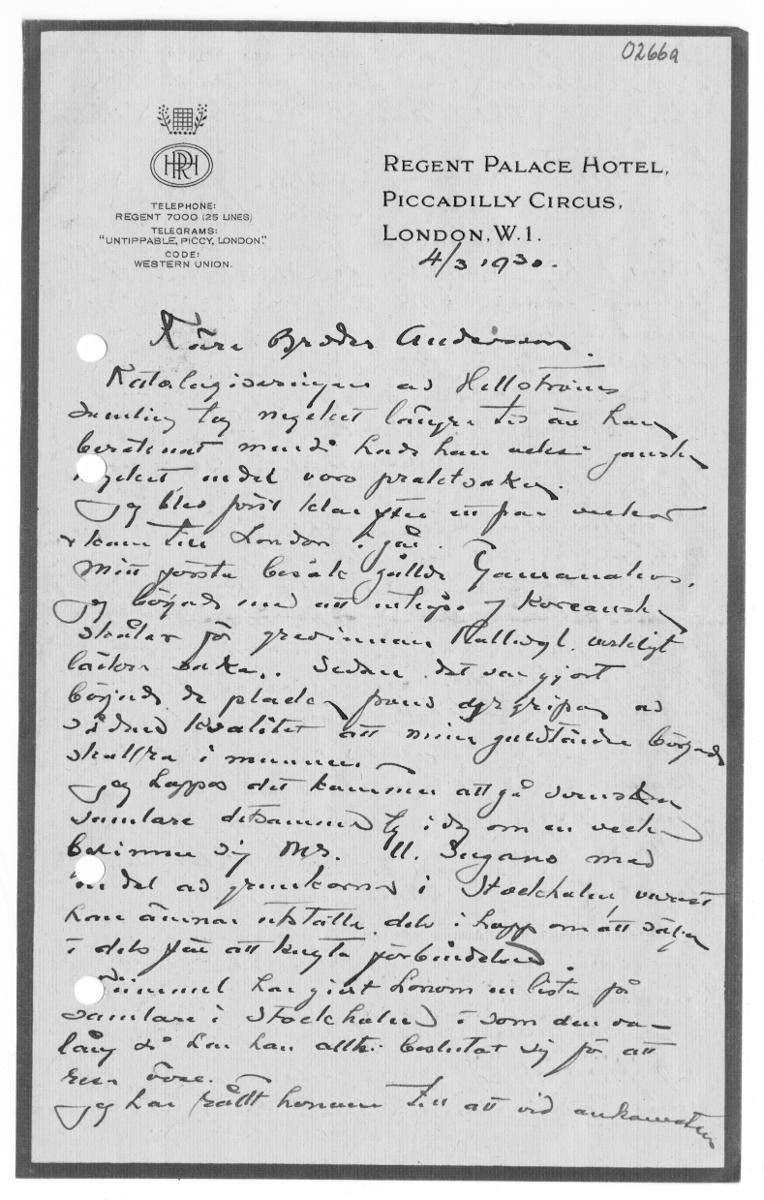 0266a
HRPH
TELEPHONE:
REGENT 7000 (25 LINES)
TELEGRAMS:
"UNTIPPABLE, PICCY, LONDON."
CODE:
WESTERN UNION.
REGENT PALACE HOTEL,
PICCADILLY CIRCUS,
LONDON, W.1.
4/3 1930.
Käre Broder Andersson.
Katalogiseringen av Hellströms
samling tog mycket längre tid än han
beräknat men så hade han också ganska
mycket, en del voro praktsaker.
Jag blev först klar efter ett par veckor
& kom till London i går.
Mitt första besök gällde Yamanakas.
Jag började med att inköpa 7 Koreanska
skålar för grevinnan Hallwyl, verkligt
läckra saker. Sedan det var gjort
började de plocka fram dyrgripar av
sådan kvalitet att mina guldtänder började
skallra i munnen.
Jag hoppas det kommer att gå svenska
samlare detsamma ty i dag om en vecka
befinner sig Mr. U. Sugano med
en del av grannkornen i Stockholm, varest
han ämnar utställa, dels i hopp om att sälja
dels för att knyta förbindelser.
Rimmel har givit honom en lista på
samlare i Stockholm & som den va
lång så har han alltså beslutat sig för att
resa över.
Jag har rått honom till att vid ankomsten